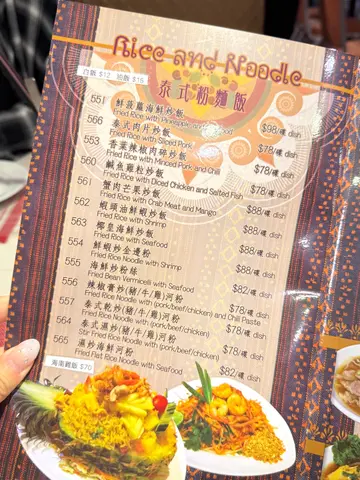 Rice and Noodle
白飯 $12 油飯 $16
泰式粉麵飯
551 鮮菠蘿海鮮炒飯
Fried Rice with Pineapple and Seafood $98/碟 dish
566 泰式肉片炒飯
Fried Rice with Sliced Pork $78/碟 dish
553 香葉辣椒肉碎炒飯
Fried Rice with Minced Pork and Chili $78/碟 dish
560 鹹魚雞粒炒飯
Fried Rice with Diced Chicken and Salted Fish $78/碟 dish
561 蟹肉芒果炒飯
Fried Rice with Crab Meat and Mango $88/碟 dish
562 蝦頭油鮮蝦炒飯
Fried Rice with Shrimp $88/碟 dish
563 椰皇海鮮炒飯
Fried Rice with Seafood $88/碟 dish
554 鮮蝦炒金邊粉
Fried Rice Noodle with Shrimp $88/碟 dish
555 海鮮炒粉絲
Fried Bean Vermicelli with Seafood $82/碟 dish
556 辣椒膏炒(豬/牛/雞)河粉
Fried Rice Noodle with (pork/beef/chicken) and Chili Paste $78/碟 dish
557 泰式乾炒(豬/牛/雞)河粉
Fried Rice Noodle with (pork/beef/chicken) $78/碟 dish
564 泰式濕炒(豬/牛/雞)河粉
Stir Fried Rice Noodle with (pork/beef/chicken) $78/碟 dish
565 濕炒海鮮河粉
Fried Flat Rice Noodle with Seafood $82/碟 dish
海南雞飯 $70